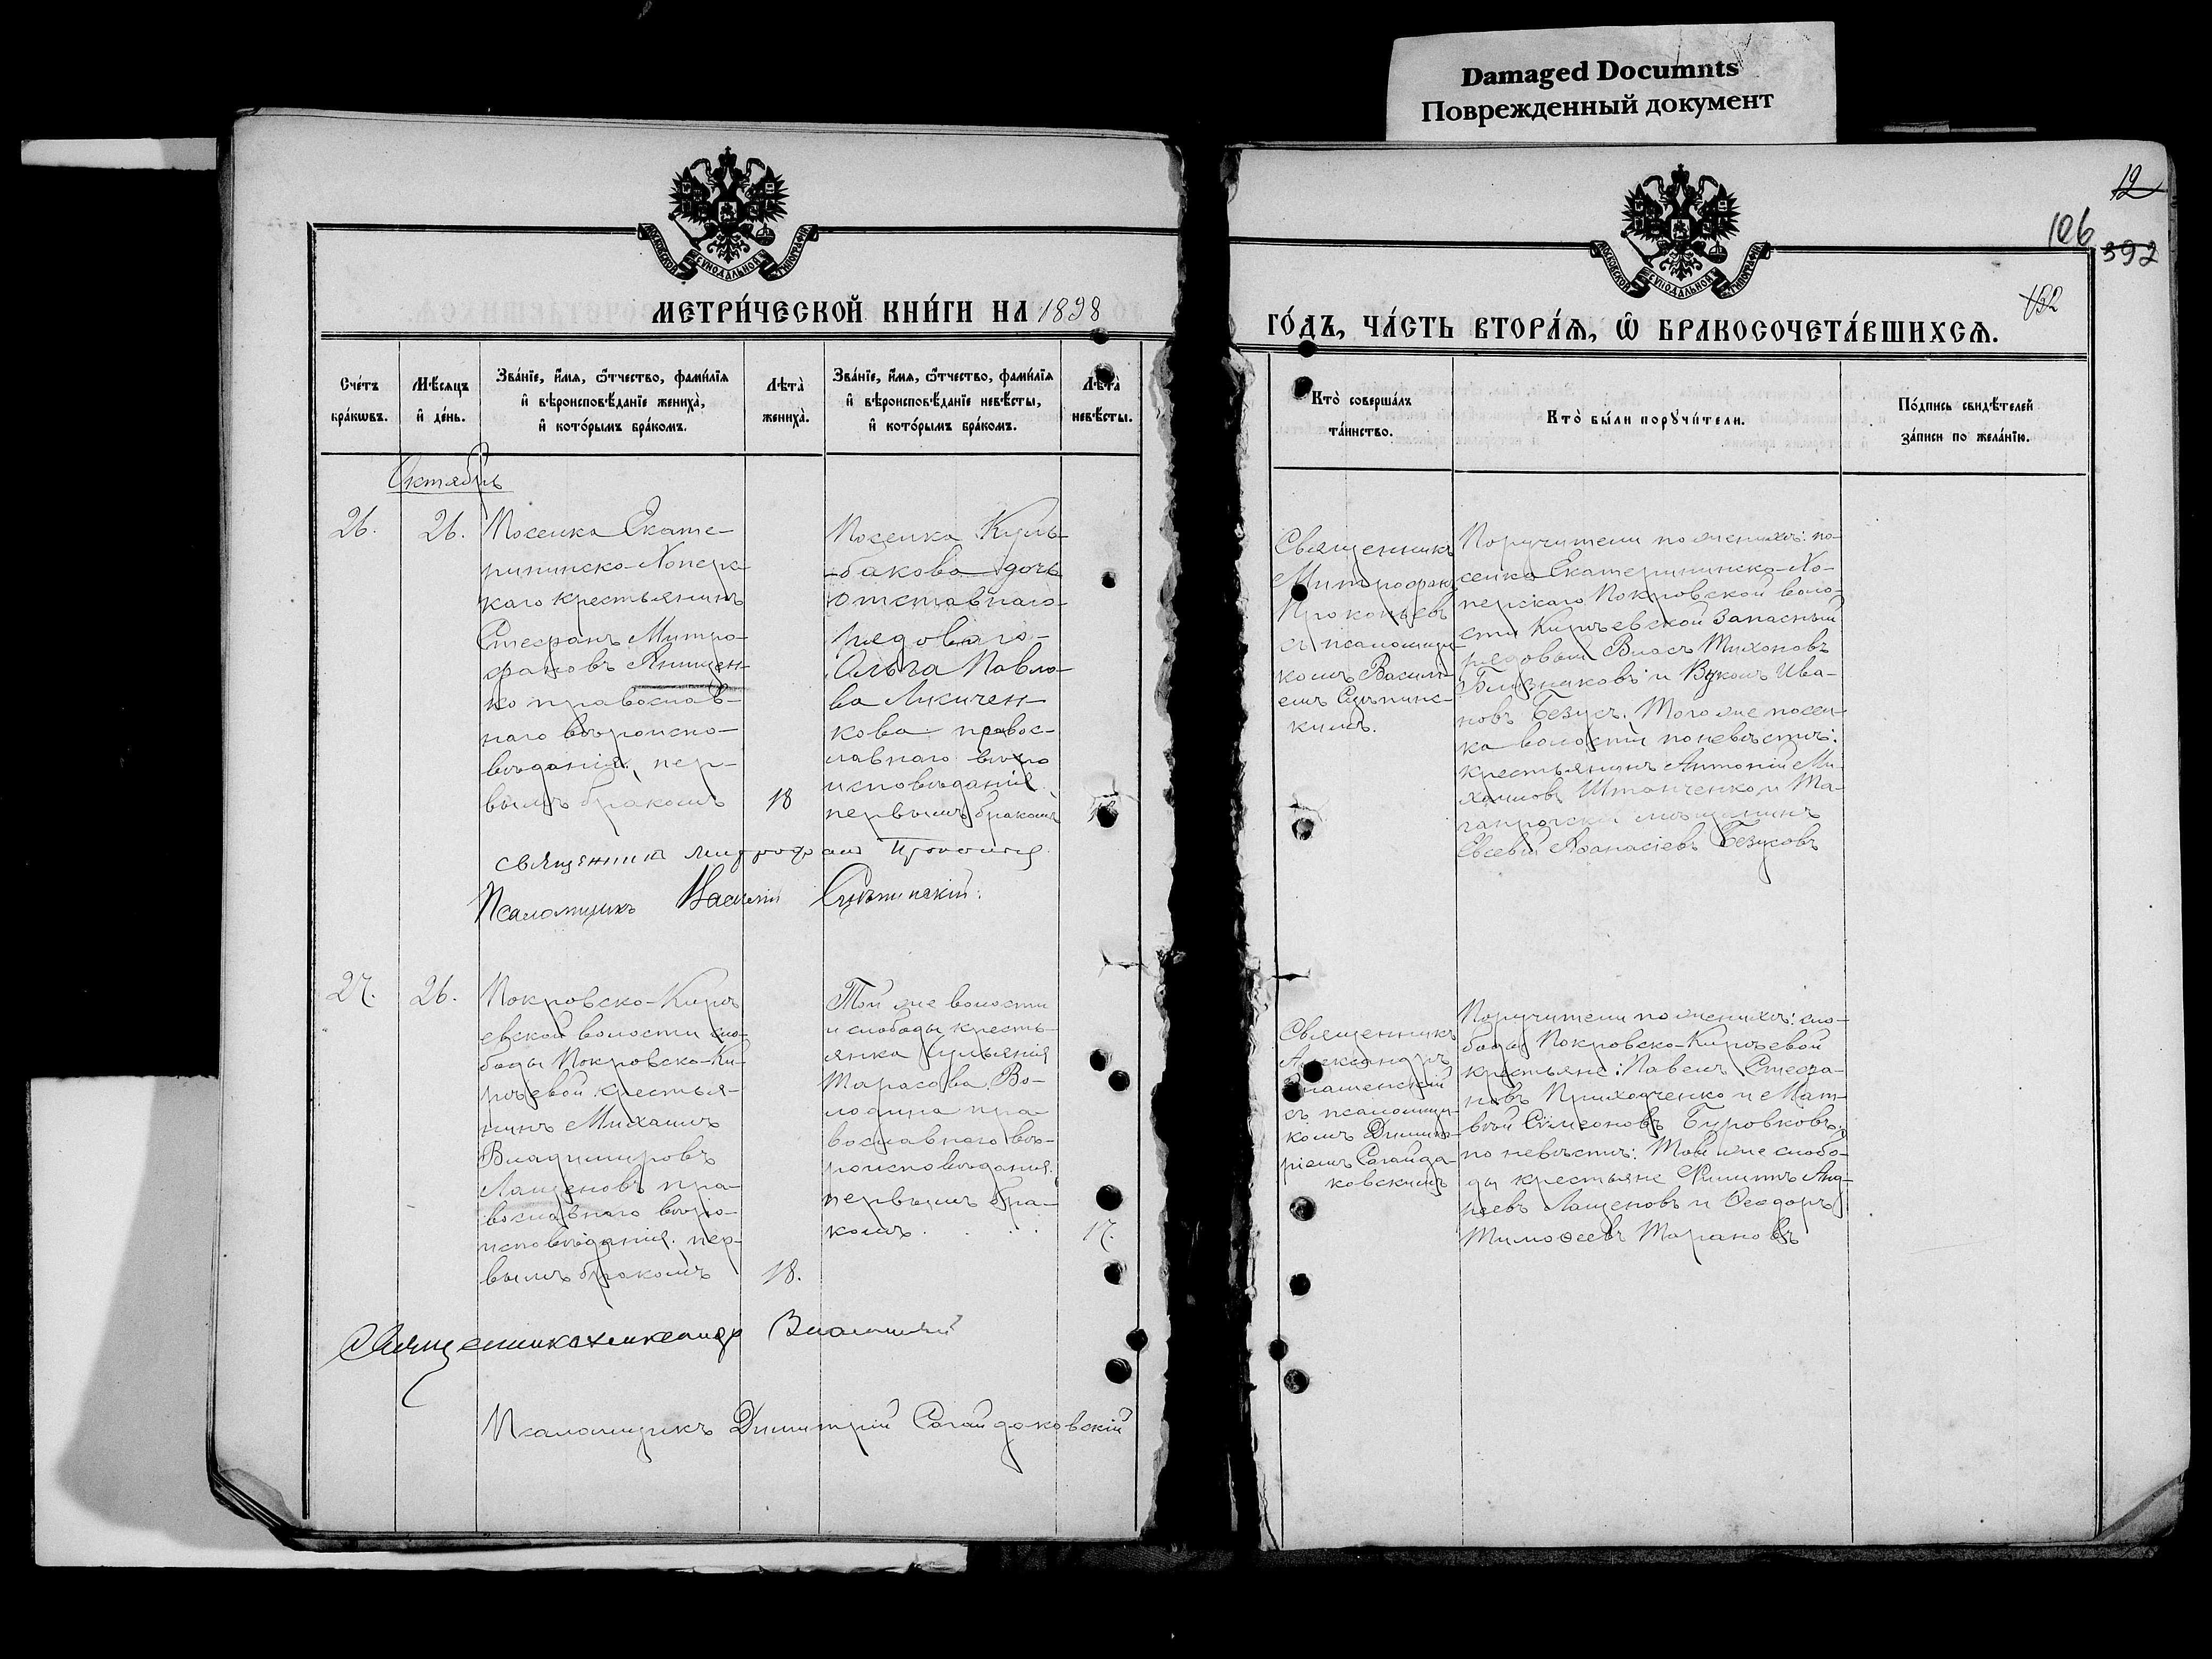 Damaged Documnts
Поврежденный документ
12
106
392
132
МОСКОВСКОЙ СѴНОДАЛЬНОЙ ТИПОГРАФІИ
МОСКОВСКОЙ СѴНОДАЛЬНОЙ ТИПОГРАФІИ
МЕТРИ́ЧЕСКОЙ КНИ́ГИ НА 1898
ГО́ДЪ, ЧА́СТЬ ВТОРА́Ѧ, Ѡ҆ БРАКОСОЧЕТА́ВШИХСѦ.
Сче́тъ бра́кѡвъ.
Мѣ́сяцъ и҆ де́нь.
Зва́нїе, и҆́мѧ, ѻ҆́тчество, фами́лїѧ и҆ вѣроисповѣ́данїе жениха̀, и҆ кото́рымъ бра́комъ.
Лѣта̀ жениха̀.
Зва́нїе, и҆́мѧ, ѻ҆́тчество, фами́лїѧ и҆ вѣроисповѣ́данїе невѣ́сты, и҆ кото́рымъ бра́комъ.
Лѣта̀ невѣ́сты.
Кто̀ соверша́лъ та́инство.
Кто̀ бы́ли порꙋчи́тели.
По́дпись свидѣ́телей за́писи по жела́нїю.
Октябрь
26.
26.
Поселка Екате-
рининско-Хоперс-
каго крестьянинъ
Стефанъ Митро-
фановъ Анищен-
ко православ-
наго вѣроиспо-
вѣданія, пер-
вымъ бракомъ
18
Поселка Куль-
бакова дочь
отставнаго
рядоваго
Ольга Павло-
ва Микичен-
кова правос-
лавнаго вѣро
исповѣданія
первымъ бракомъ
Священникъ
Митрофанъ
Прокопьевъ
съ псаломщи-
комъ Васили-
емъ Сцепинс-
кимъ.
Поручители по женихѣ: по-
селка Екатерининско-Хо-
перскаго Покровской воло-
сти Кирѣевской запасный
рядовый Власъ Тихоновъ
Близнаковъ и Вуколъ Ива-
новъ Безусъ. Того же посел-
ка волости по невѣстѣ:
крестьянинъ Антоній Ми-
хаиловъ Штанченко и Та-
ганрогскій мѣщанинъ
Евсевій Аѳанасіевъ Безусовъ
священникъ митрофанъ
Псаломщикъ Василій
27.
26.
Покровско-Кирѣ-
евской волости сло-
боды Покровско-Ки-
рѣевой крестья-
нинъ Михаилъ
Владимировъ
Лащеновъ пра-
вославнаго вѣро-
исповѣданія. пер-
вымъ бракомъ
18.
Той же волости
и слободы кресть-
янка Іульянія
Тарасова Во-
лодина пра-
вославнаго вѣ-
роисповѣданія.
первымъ бра-
комъ . . .
17.
Священникъ
Александръ
Знаменскій
съ псаломщи-
комъ Димит-
ріемъ Сагайда-
ковскимъ
Поручители по женихѣ: сло-
боды Покровско-Кирѣевой
крестьяне: Павелъ Стефа-
новъ Приходченко и Мат-
вѣй Сѵмеоновъ Буровковъ;
по невѣстѣ: Той же слобо-
ды крестьяне Филиппъ Анд-
реевъ Лащеновъ и Ѳеодоръ
Тимоѳеевъ Тарановъ
Священникъ Александръ
Псаломщикъ Димитрій Сагайдаковскій